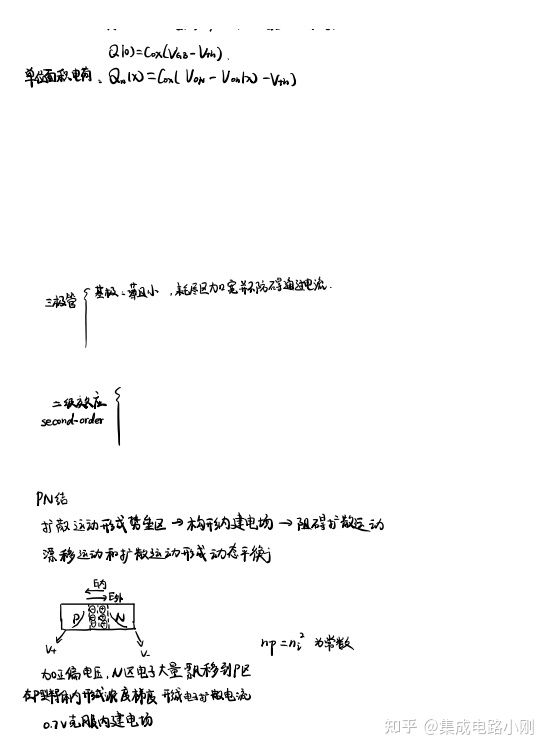 Q(0)=Cox(VGB-Vth).
单位面积电荷. Qn(x)=Cox( VGN-VGN(x)-Vth)
三极管 { 基极:薄且小,耗尽区加宽并不防碍通过电流.
二级效应 {
second-order
PN结
扩散运动形成势垒区→构形内建电场→阻碍扩散运动
漂移运动和扩散运动形成动态平衡
E内
E外
P N
V+ V-
np=ni² 为常数
加正偏电压,N区电子大量飘移到P区
在P型 内形成浓度梯度 形成电子扩散电流
0.7V克服内建电场
知乎 @集成电路小刚